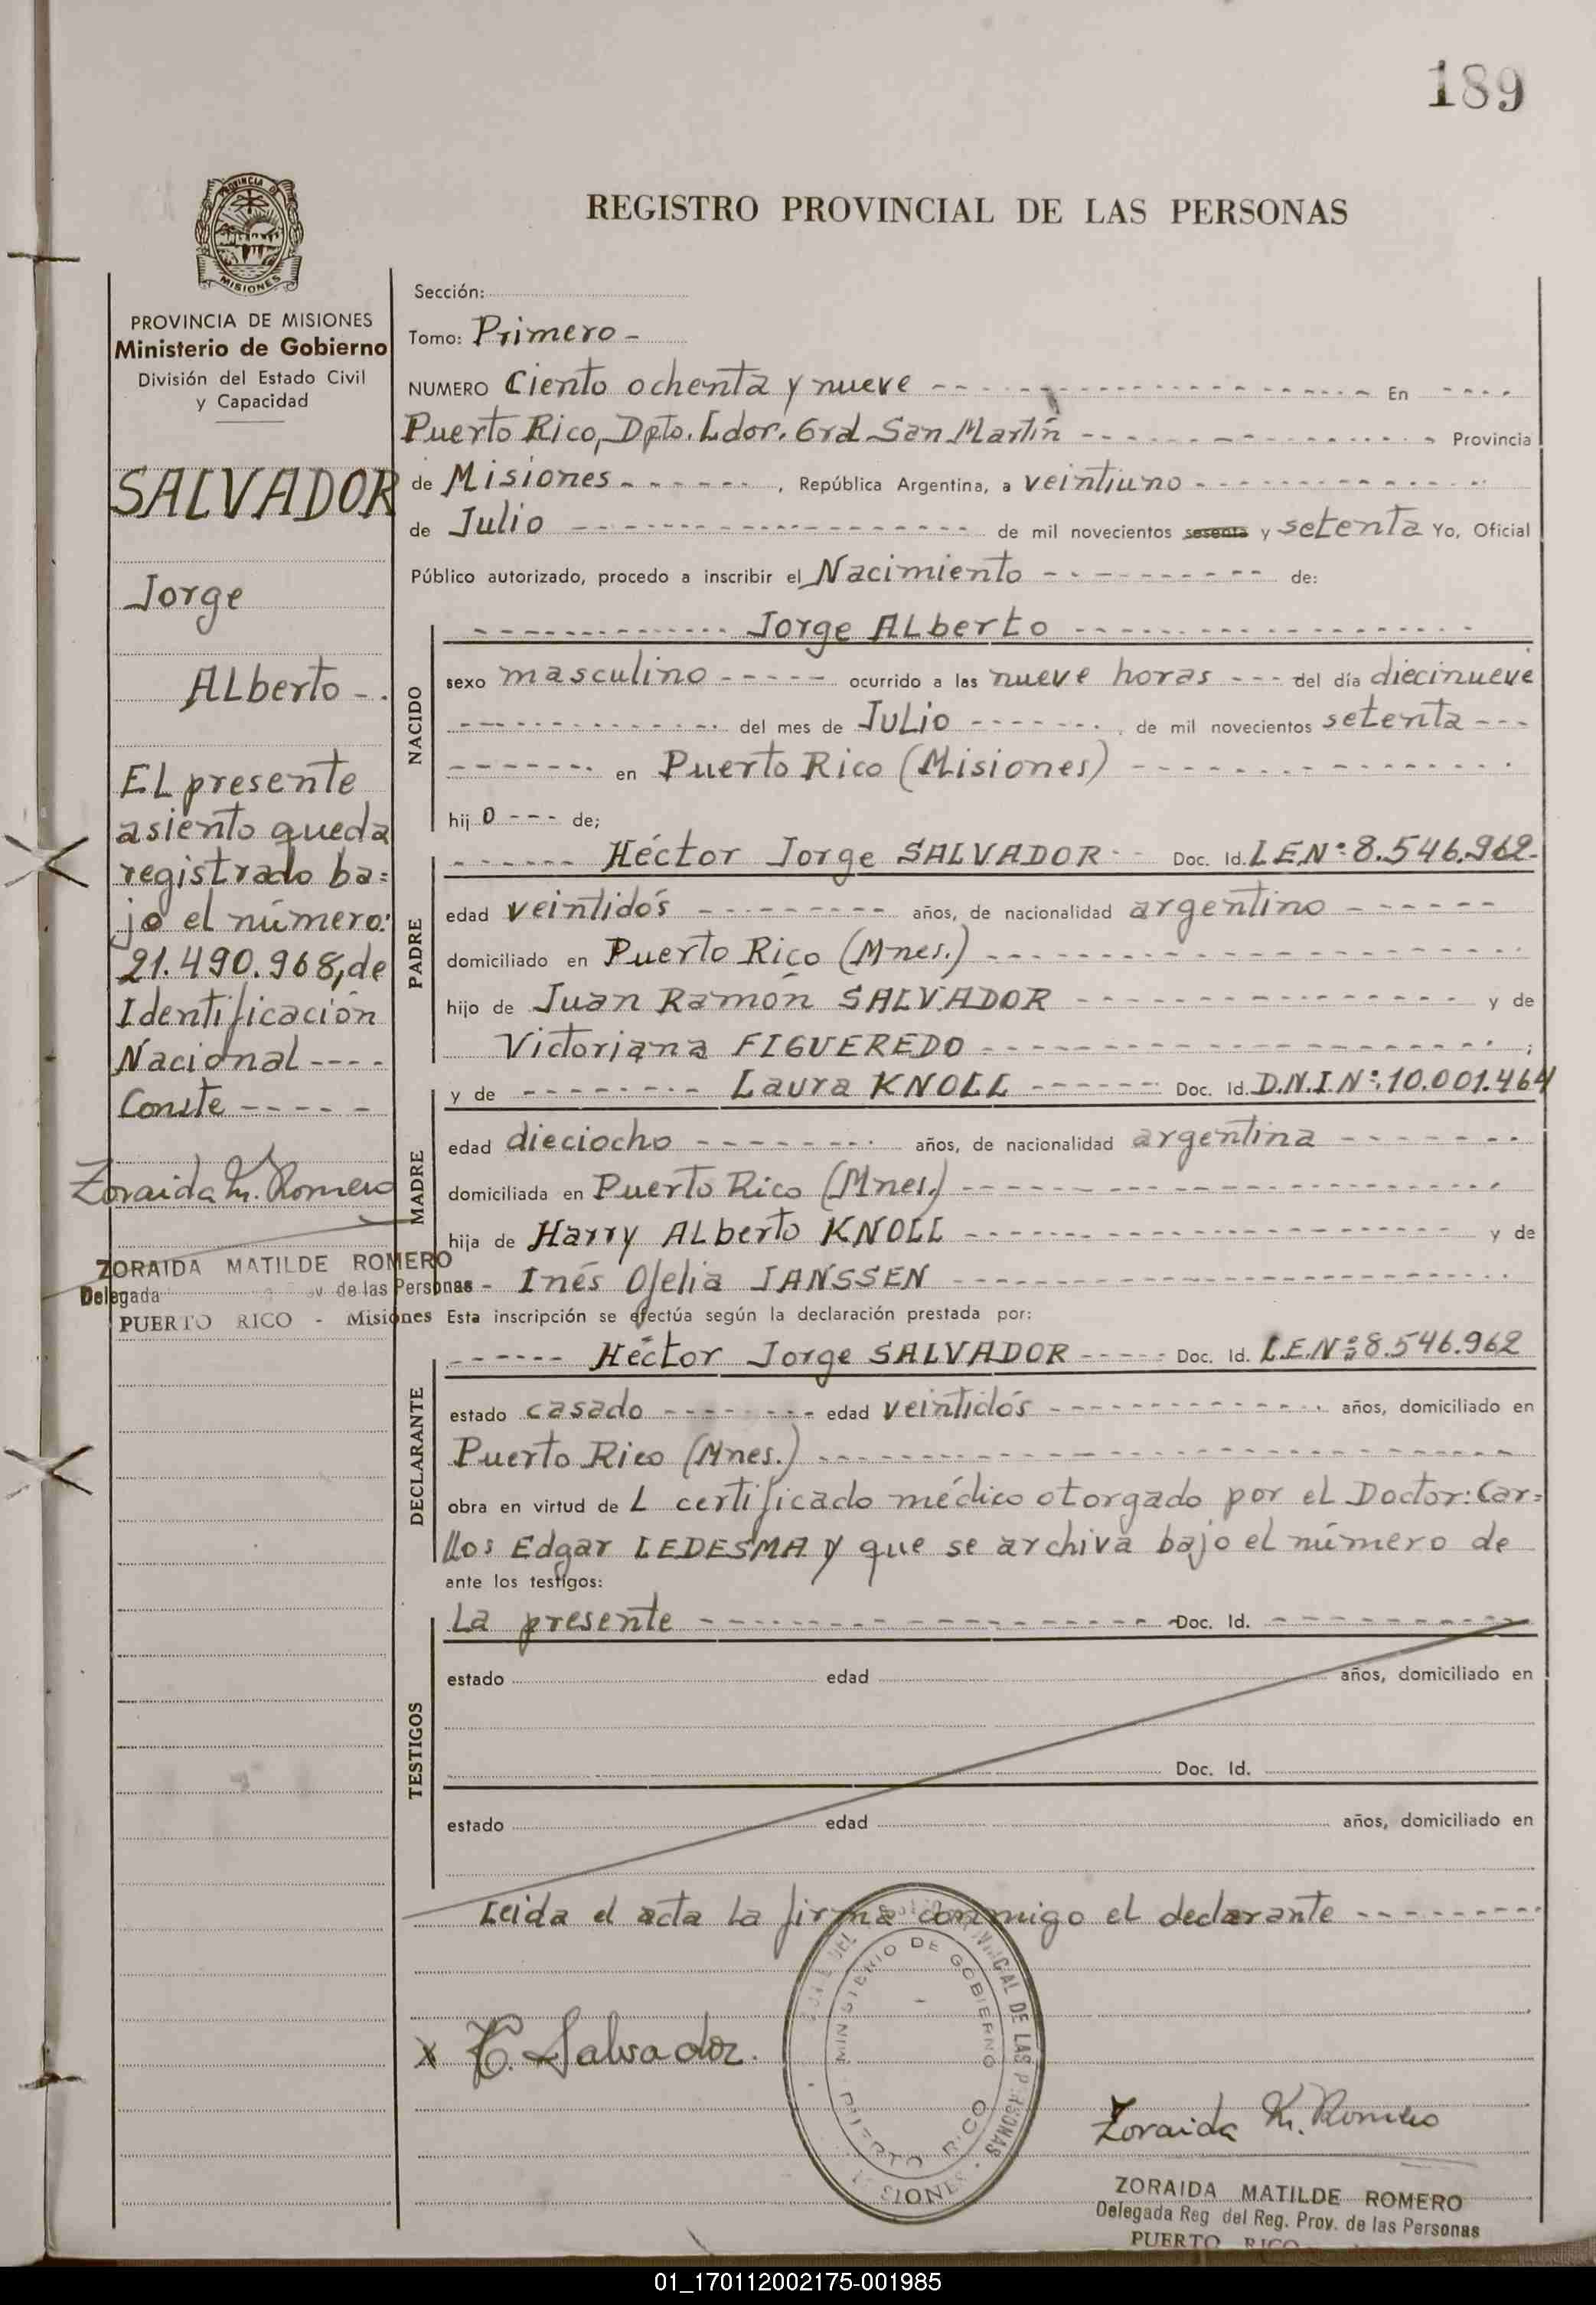 189
PROVINCIA DE
MISIONES
REGISTRO PROVINCIAL DE LAS PERSONAS
PROVINCIA DE MISIONES
Ministerio de Gobierno
División del Estado Civil
y Capacidad
SALVADOR
Jorge
ALberto - .
EL presente
asiento queda
registrado ba=
jo el número:
21.490.968, de
Identificación
Nacional ----
Conste - - - - -
Zoraida M. Romero
ZORAIDA MATILDE ROMERO
Delegada de las Personas
PUERTO RICO - Misiones
Sección:
Tomo: Primero -
NUMERO Ciento ochenta y nueve - - - En - - - -
Puerto Rico, Dpto. Ldor. Gral San Martín - - - Provincia
de Misiones - - - , República Argentina, a veintiuno - - -
de Julio - - - de mil novecientos sesenta y setenta Yo, Oficial
Público autorizado, procedo a inscribir el Nacimiento - - - de:
NACIDO
- - - Jorge ALberto - - -
sexo masculino - - - ocurrido a las nueve horas - - - del día diecinueve
- - - del mes de JuLio - - - , de mil novecientos setenta - - -
- - - en Puerto Rico (Misiones) - - -
hij o - - - de;
PADRE
- - - Héctor Jorge SALVADOR - - Doc. Id. L.E.Nº: 8.546.962-
edad veintidós - - - años, de nacionalidad argentino - - -
domiciliado en Puerto Rico (Mnes.) - - -
hijo de Juan Ramón SALVADOR - - - y de
Victoriana FIGUEREDO - - - ;
MADRE
y de - - - Laura KNOLL - - - Doc. Id. D.N.I.Nº: 10.001.464
edad dieciocho - - - años, de nacionalidad argentina - - -
domiciliada en Puerto Rico (Mnes.) - - -
hija de Harry ALberto KNOLL - - - y de
- Inés Ofelia JANSSEN - - -
Esta inscripción se efectúa según la declaración prestada por:
DECLARANTE
- - - Héctor Jorge SALVADOR - - - Doc. Id. L.E.Nº: 8.546.962
estado casado - - - edad veintidós - - - años, domiciliado en
Puerto Rico (Mnes.) - - -
obra en virtud de L certificado médico otorgado por el Doctor: Car=
llos Edgar LEDESMA y que se archiva bajo el número de
ante los testigos:
TESTIGOS
La presente - - - Doc. Id. - - -
estado edad años, domiciliado en
Doc. Id.
estado edad años, domiciliado en
Leida el acta la firma conmigo el declarante - - -
X H. Salvador.
PROVINCIAL DE LAS PERSONAS
MINISTERIO DE GOBIERNO
PUERTO RICO
MISIONES
Zoraida M. Romero
ZORAIDA MATILDE ROMERO
Delegada Reg del Reg. Prov. de las Personas
PUERTO RICO
01_170112002175-001985